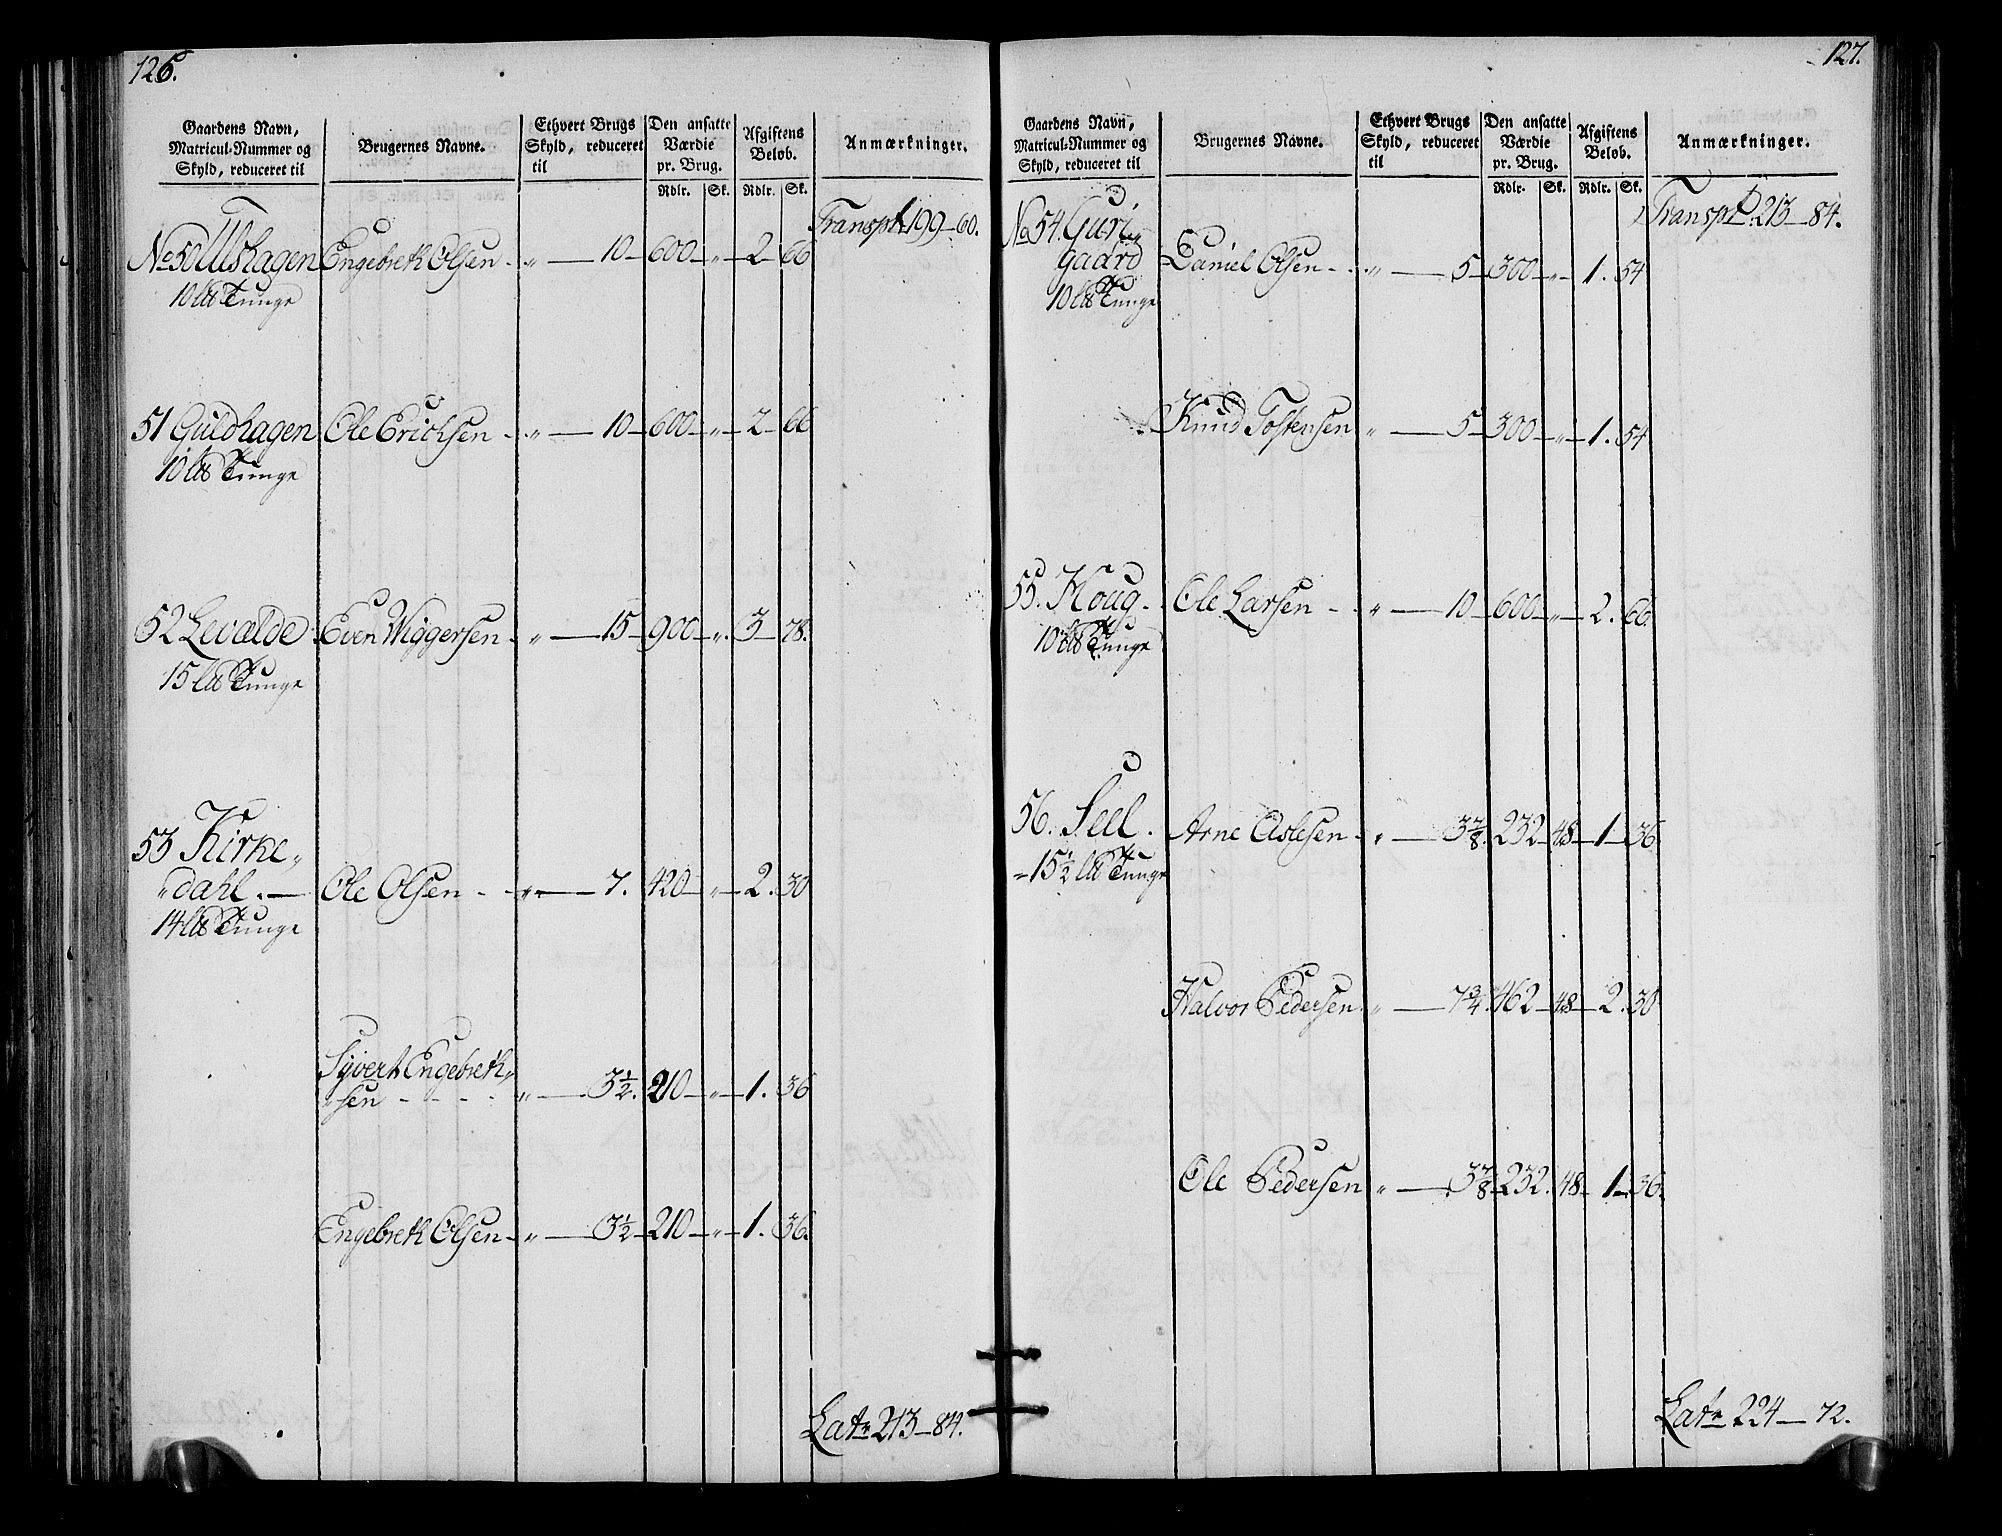 126.
Gaardens Navn, Matricul-Nummer og Skyld, reduceret til
Brugernes Navne.
Ethvert Brugs Skyld, reduceret til
Den ansatte Værdie pr. Brug.
Afgiftens Beløb.
Anmærkninger.
Rdlr. Sk. Rdlr. Sk.
Transpt. 199 — 60.
No 50 Ulshagen Engebreth Olsen - „ — 10 — 600 — „ — 2 — 66
10 lb Tunge
51 Guldhagen Ole Erichsen - „ — 10 — 600 — „ — 2 — 66
10 lb Tunge
52 Levalde Even Wiggersen - „ — 15 — 900 — „ — 3 — 78.
15 lb Tunge
53 Kirke„
„dahl. — Ole Olsen - „ — 7. 420 — „ — 2. 30
14 lb Tunge
Syvert Engebreth„
„sen - - - - „ — 3½. 210 — „ — 1. 36
Engebreth Olsen - „ — 3½ — 210 — „ — 1. 36.
Latr 213 — 84.
127.
Gaardens Navn, Matricul-Nummer og Skyld, reduceret til
Brugernes Navne.
Ethvert Brugs Skyld, reduceret til
Den ansatte Værdie pr. Brug.
Afgiftens Beløb.
Anmærkninger.
Rdlr. Sk. Rdlr. Sk.
Transpt. 213 — 84.
No 54. Guri„
gaard Daniel Olsen - „ — 5 — 300 — „ — 1. 54
10 lb Tunge
Knud Tostensen „ — 5 — 300 — „ — 1. 54
55. Houg - Ole Larsen - „ — 10 — 600 — „ — 2. 66.
10 lb Tunge
56. Seel. Arne Aslesen - „ — 3⅞. 232 — 48 — 1 — 36
15½ lb Tunge
Halvor Pedersen „ — 7¾. 462 — 48 — 2. 30
Ole Pedersen „ — 3⅞ — 232. 48 — 1 — 36.
Latr 224 — 72.